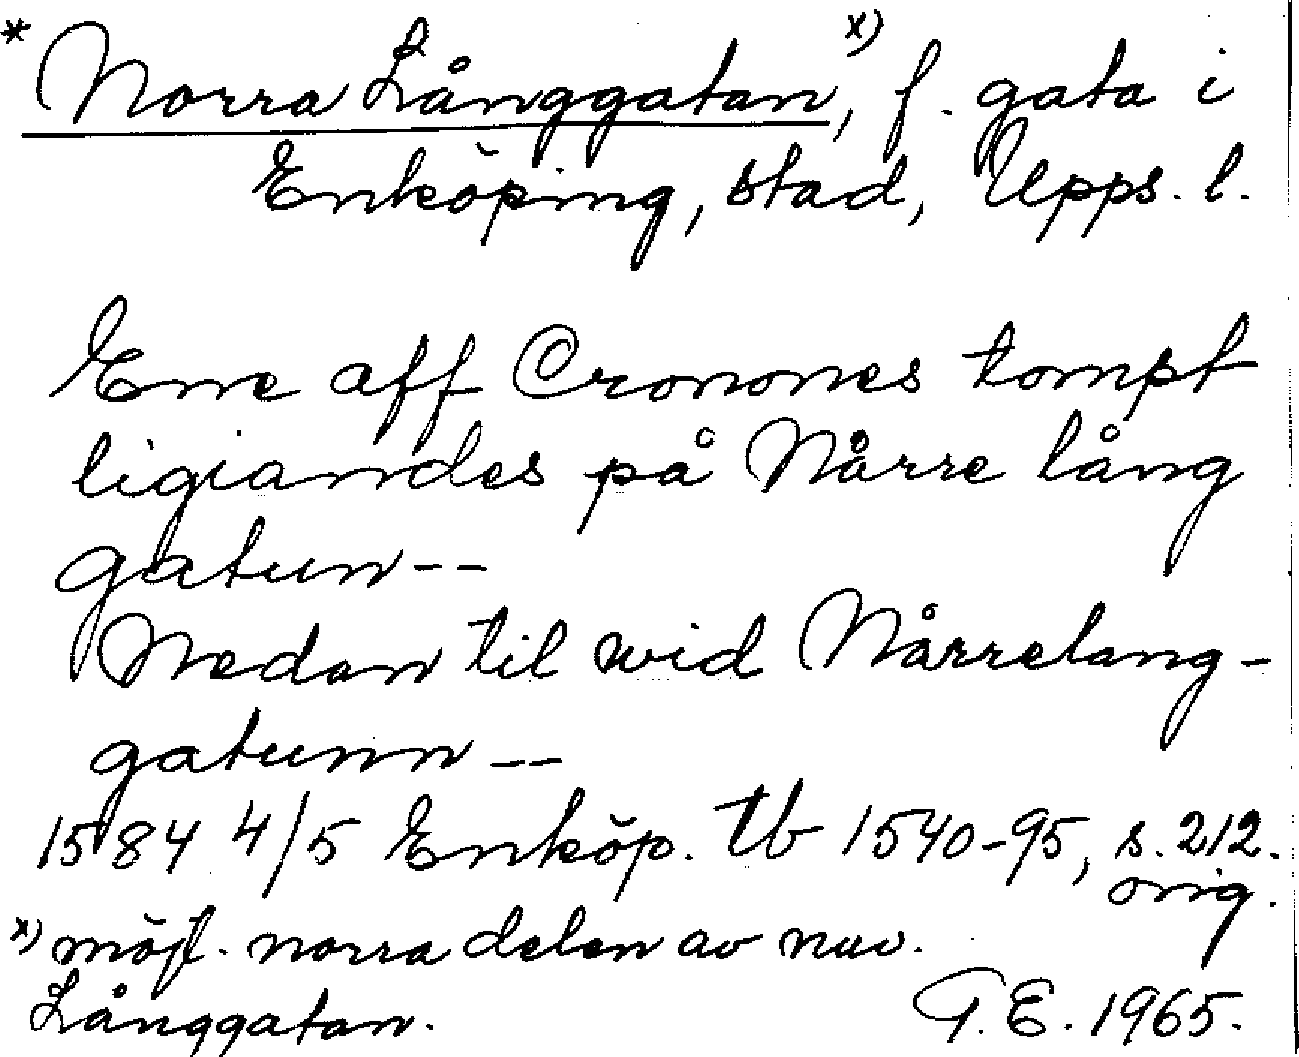 * Norra Långgatan, x) f. gata i
Enköping, stad, Upps. l.
Enne aff Cronones tompt
ligiandes på Nårre lång
gatun--
Nedan til wid Nårrelang-
gatunn --
1584 4/5 Enköp. tb 1540-95, s. 212.
orig.
x) möjl. norra delen av nuv.
Långgatan.
T.E. 1965.